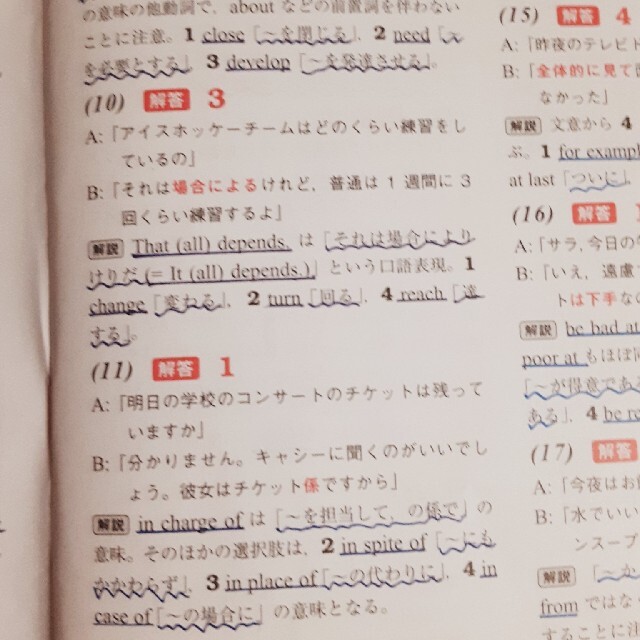 の意味の他動詞で，about などの前置詞を伴わない
ことに注意。1 close「〜を閉じる」，2 need「〜
を必要とする」 3 develop「〜を発達させる」。
(10) 解答 3
A:「アイスホッケーチームはどのくらい練習をし
ているの」
B:「それは場合によるけれど，普通は 1 週間に 3
回くらい練習するよ」
解説 That (all) depends. は「それは場合により
けりだ (= It (all) depends.)」という口語表現。1
change「変わる」，2 turn「回る」，4 reach「達
する」。
(11) 解答 1
A:「明日の学校のコンサートのチケットは残って
いますか」
B:「分かりません。キャシーに聞くのがいいでし
ょう。彼女はチケット係ですから」
解説 in charge of は「〜を担当して，の係で」の
意味。そのほかの選択肢は，2 in spite of「〜にも
かかわらず」，3 in place of「〜の代わりに」，4 in
case of「〜の場合に」の意味となる。
(15) 解答 4
A:「昨夜のテレビ
B:「全体的に見て
なかった」
解説 文意から 4
ぶ。1 for exampl
at last「ついに」
(16) 解答 1
A:「サラ，今日の
B:「いえ，遠慮
トは下手な
解説 be bad at
poor at もほぼ
「〜が得意である
ある」，4 be
(17) 解答
A:「今夜はお
B:「水でいい
ンスープ
解説 「〜か
from ではな
することに注